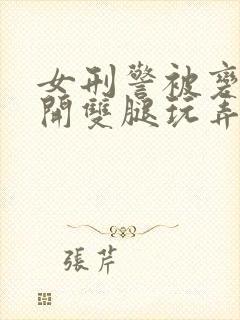 女刑警被褻
開雙腿玩弄
張芹